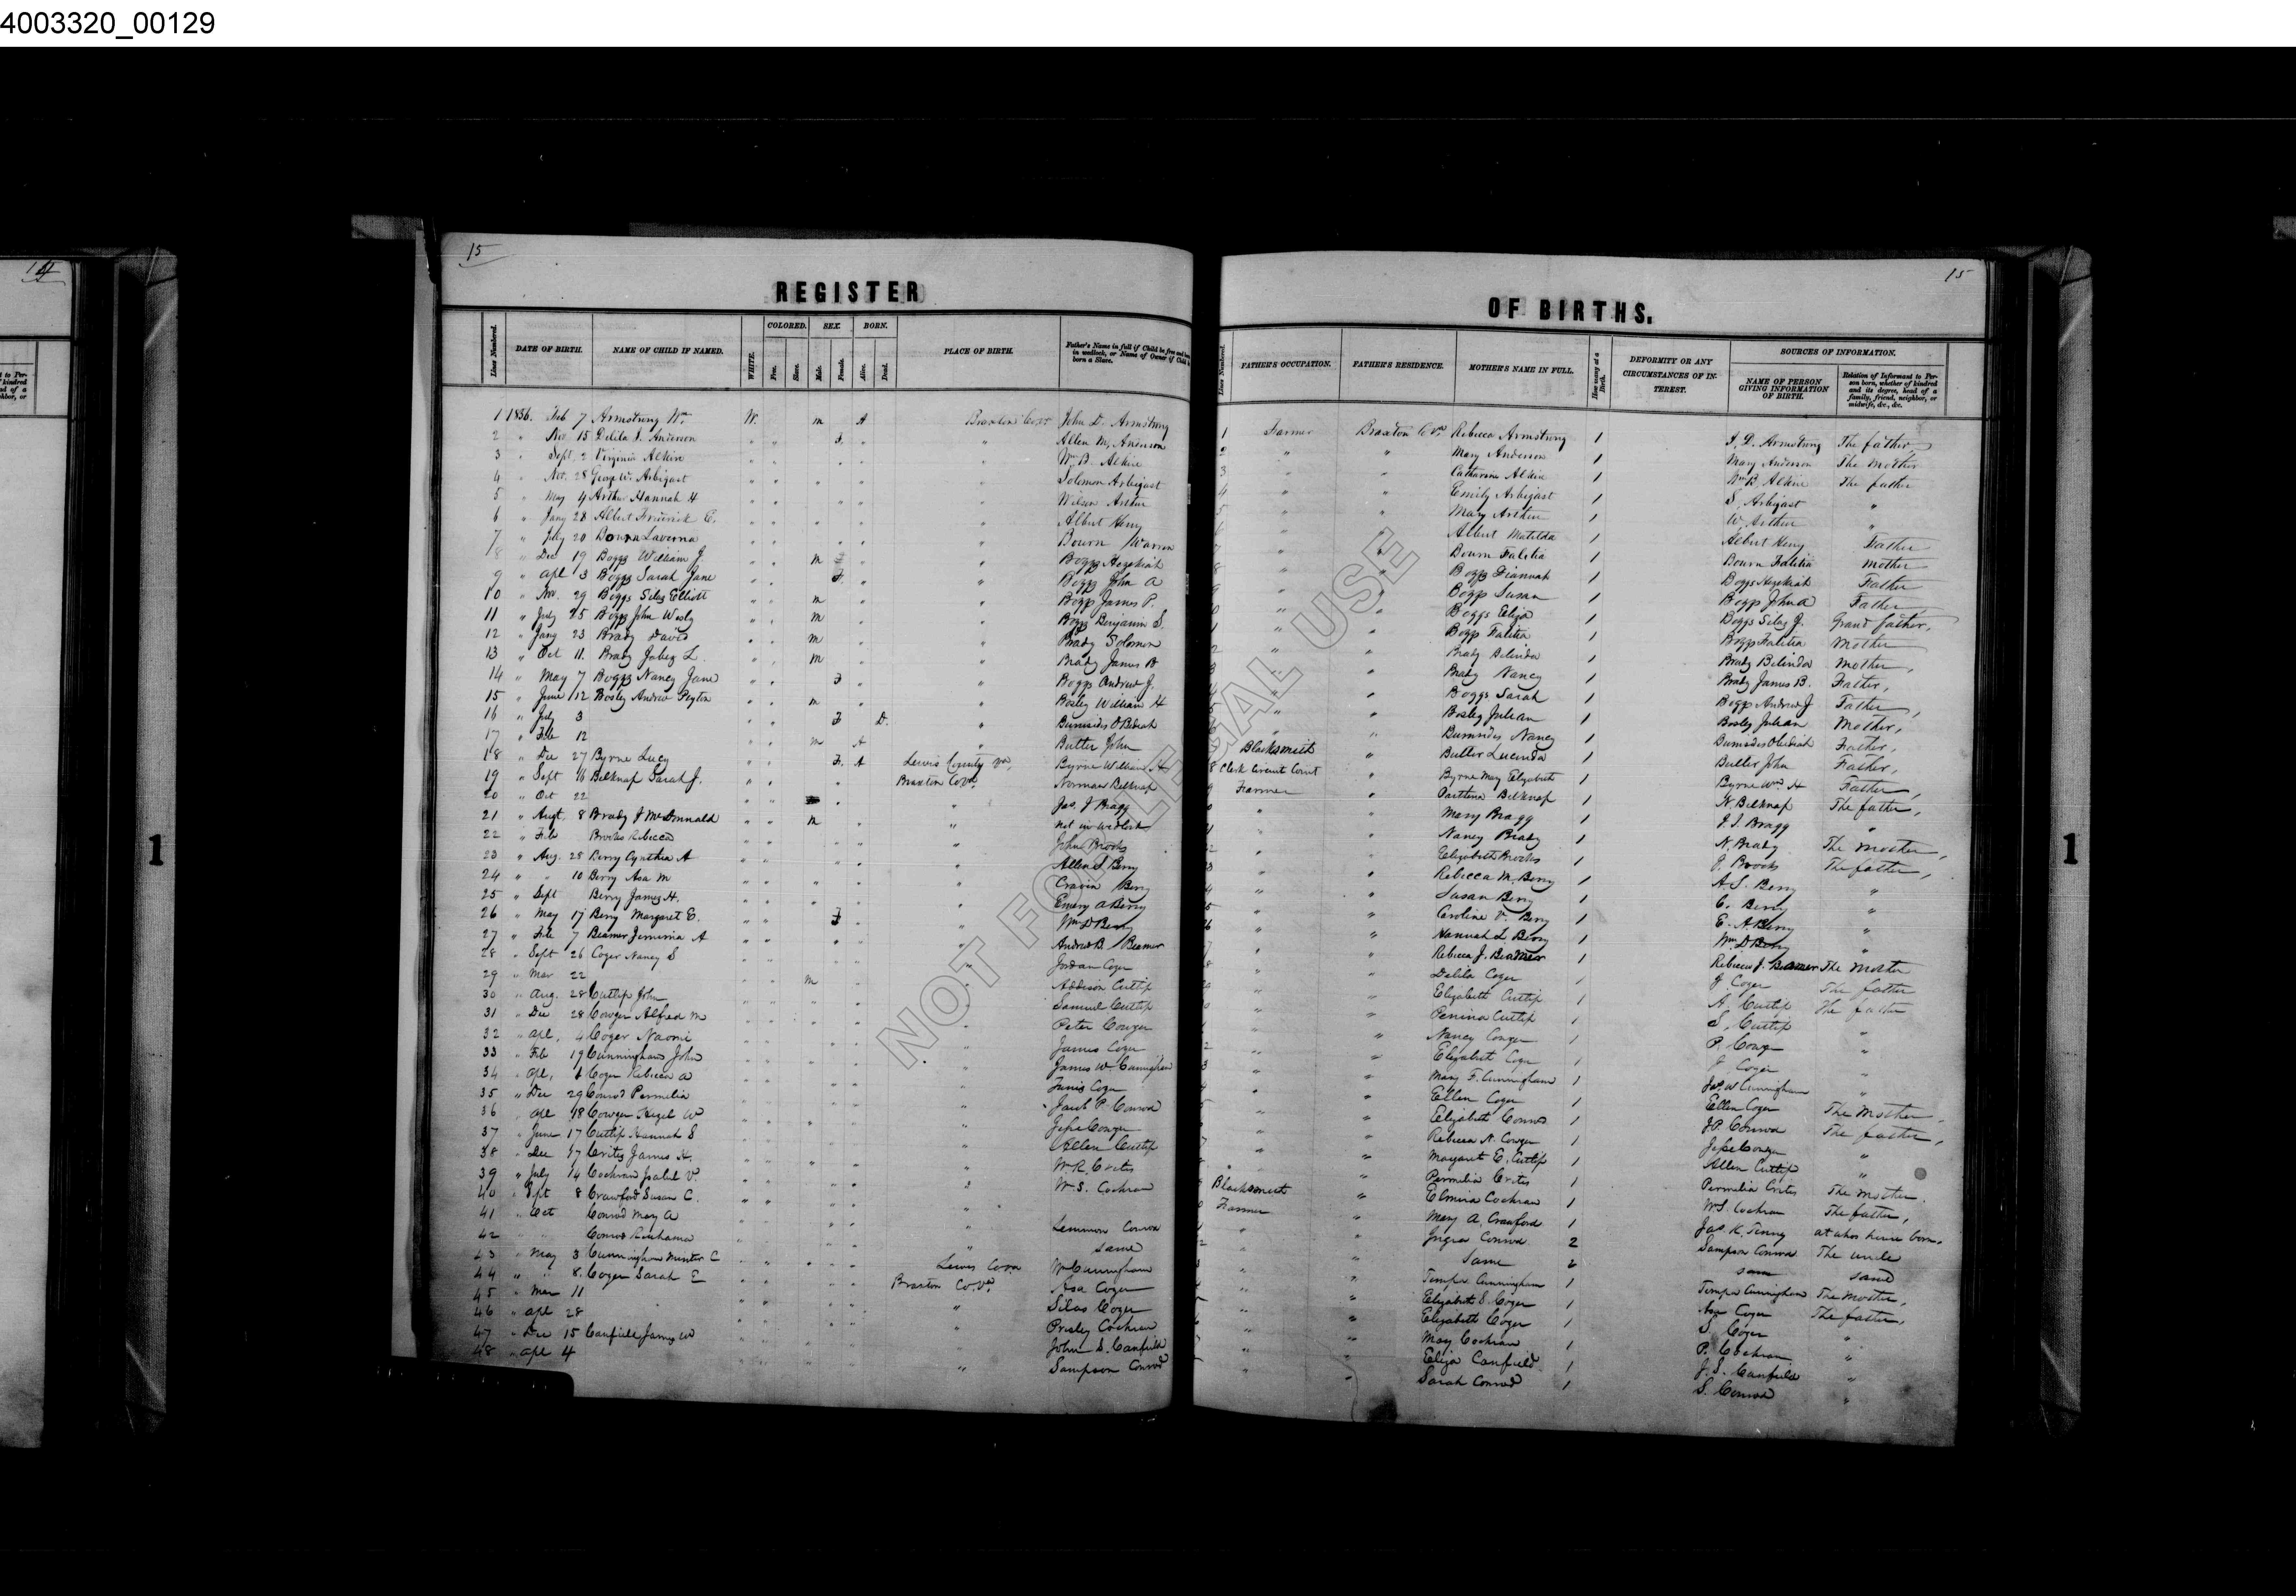 4003320_00129
14
15
15
REGISTER
OF BIRTHS.
Lines Numbered. DATE OF BIRTH. NAME OF CHILD IF NAMED. WHITE. COLORED. Free. Slave. SEX. Male. Female. BORN. Alive. Dead. PLACE OF BIRTH. Father's Name in full if Child be free and born in wedlock, or Name of Owner if Child born a Slave.
Lines Numbered. FATHER'S OCCUPATION. FATHER'S RESIDENCE. MOTHER'S NAME IN FULL. How many at a Birth. DEFORMITY OR ANY CIRCUMSTANCES OF INTEREST. SOURCES OF INFORMATION. NAME OF PERSON GIVING INFORMATION OF BIRTH. Relation of Informant to Person born, whether of kindred and its degree, head of a family, friend, neighbor, or midwife, &c., &c.
1 1856. Feb 7 Armstrong Wm W. m A Braxton Co Va John D. Armstrong Farmer Braxton Co Va Rebecca Armstrong 1 J. D. Armstrong The father
2 " Nov 15 Delila J. Anderson " F. " " Allen M. Anderson " " Mary Anderson 1 Mary Anderson The Mother
3 " Sept. 2 Virginia Alkire " " " Wm B. Alkire " " Catharine Alkire 1 Wm B. Alkire The father
4 " Nov. 28 George W. Arbigast " " " Solomon Arbigast " " Emily Arbigast 1 S. Arbigast "
5 " May 4 Arthur Hannah H " " " Wilson Arthur " " Mary Arthur 1 W. Arthur "
6 " Jany 28 Albert E. " " " Albert Henry " " Albert Matilda 1 Albert Henry Father
7 " July 20 Bourn Laverna " " " Bourn Warren " " Bourn Talitia 1 Bourn Talitia Mother
8 " Dec 19 Boggs William J. " m " " Boggs Hezekiah " " Boggs Diannah 1 Boggs Hezekiah Father
9 " Apl 3 Boggs Sarah Jane " F. " " Boggs John A " " Boggs Susan 1 Boggs John A Father
10 " Nov. 29 Boggs Silas Elliott " m " " Boggs James P. " " Boggs Eliza 1 Boggs Silas J. Grand father,
11 " July 25 Boggs John Wesly " m " " Boggs Benjamin S. " " Boggs Talitia 1 Boggs Talitia Mother
12 " Jany 23 Brady Davis " m " " Brady Solomon " " Brady Belinda 1 Brady Belinda Mother,
13 " Oct 11. Brady Jabez L. " m " " Brady James B " " Brady Nancy 1 Brady James B. Father,
14 " May 7 Boggs Nancy Jane " F " " Boggs Andrew J. " " Boggs Sarah 1 Boggs Andrew J Father,
15 " June 12 Bosley Andrew Peyton " m " " Bosley William H " " Bosley Julian 1 Bosley Julian Mother,
16 " July 3 " F D. " Burnsides Obediah " " Burnsides Nancy 1 Burnsides Obediah Father,
17 " Feb 12 " m A " Butler John Blacksmith " Butler Lucinda 1 Butler John Father,
18 " Dec 27 Byrne Lucy " F. A Lewis County Va, Byrne William H Clerk Circuit Court " Byrne Mary Elizabeth 1 Byrne Wm H Father,
19 " Sept 16 Belknap Sarah J. " " Braxton Co Va. Norman Belknap Farmer " Belknap 1 N. Belknap The father,
20 " Oct 22 " " " Jas. J Bragg " " Mary Bragg 1 J. J. Bragg "
21 " Augt, 8 Brady J McDonnald " m " " Not in wedlock " " Nancy Brady 1 N. Brady The Mother,
22 " Feb Brooks Rebecca " " " John Brooks " " Elizabeth Brooks 1 J. Brooks The father,
23 " Aug. 28 Berry Cynthia A " " " Allen S Berry " " Rebecca M. Berry 1 A. S. Berry "
24 " " 10 Berry Asa M " " " Cravin Berry " " Susan Berry 1 C. Berry "
25 " Sept Berry James H. " " " Emery A Berry " " Caroline V. Berry 1 E. A Berry "
26 " May 17 Berry Margaret E. " F " " Wm D Berry " " Hannah L Berry 1 Wm D Berry "
27 " Feb 7 Beamer Jemima A " " " Andrew B Beamer " " Rebecca J. Beamer 1 Rebecca J. Beamer The Mother
28 " Sept 26 Coger Nancy S " " " Jordan Coger " " Delila Coger 1 J Coger The father
29 " Mar 22 " m " " Addison Cutlip " " Elizabeth Cutlip 1 A. Cutlip The father
30 " Aug. 28 Cutlip John " " " Samuel Cutlip " " Penina Cutlip 1 S. Cutlip "
31 " Dec 28 Cowger Alfred M " " " Peter Cowger " " Nancy Cowger 1 P. Cowger "
32 " Apl, 4 Coger Naomi " " " James Coger " " Elizabeth Coger 1 J Coger "
33 " Feb 19 Cunningham John " " " James W Cunningham " " Mary F. Cunningham 1 Jas W Cunningham "
34 " Apl, 1 Coger Rebecca A " " " Coger " " Ellen Coger 1 Ellen Coger The Mother,
35 " Dec 29 Conrod Permelia " " " Jacob P. Conrod " " Elizabeth Conrod 1 J P. Conrod The father,
36 " Apl 18 Cowger W " " " Jesse Cowger " " Rebecca N. Cowger 1 Jesse Cowger "
37 " June 17 Cutlip Hannah S " " " Allen Cutlip " " Margaret E. Cutlip 1 Allen Cutlip "
38 " Dec 17 Crites James H. " " " W. R. Crites " " Permelia Crites 1 Permelia Crites The Mother.
39 " July 14 Cochran Isabel V. " " " W. S. Cochran Blacksmith " Elmira Cochran 1 W. S. Cochran The father,
40 " Sept 8 Crawford Susan C. " " " Farmer " Mary A. Crawford 1 Jas. K. Tenny at whos house born.
41 " Oct Conrod Mary A " " " Lemmon Conrod " " Conrod 2 Sampson Conrod The uncle
42 " " Conrod Ruhama " " " same " " Same 2 same same
43 " May 3 Cunningham Minter C " " Lewis Co Va Wm Cunningham " " Tempa Cunningham 1 Tempa Cunningham The Mother,
44 " " 8. Coger Sarah E " " Braxton Co. Va. Asa Coger " " Elizabeth S. Coger 1 Asa Coger The father,
45 " Mar 11 " " " Silas Coger " " Elizabeth Coger 1 S. Coger "
46 " Apl 28 " " " Presley Cochran " " Mary Cochran 1 P. Cochran "
47 " Dec 15 Canfield James W " " " John S. Canfield " " Eliza Canfield 1 J. S. Canfield "
48 " Apl 4 " " " Sampson Conrod " " Sarah Conrod 1 S. Conrod "
NOT FOR LEGAL USE
1
1